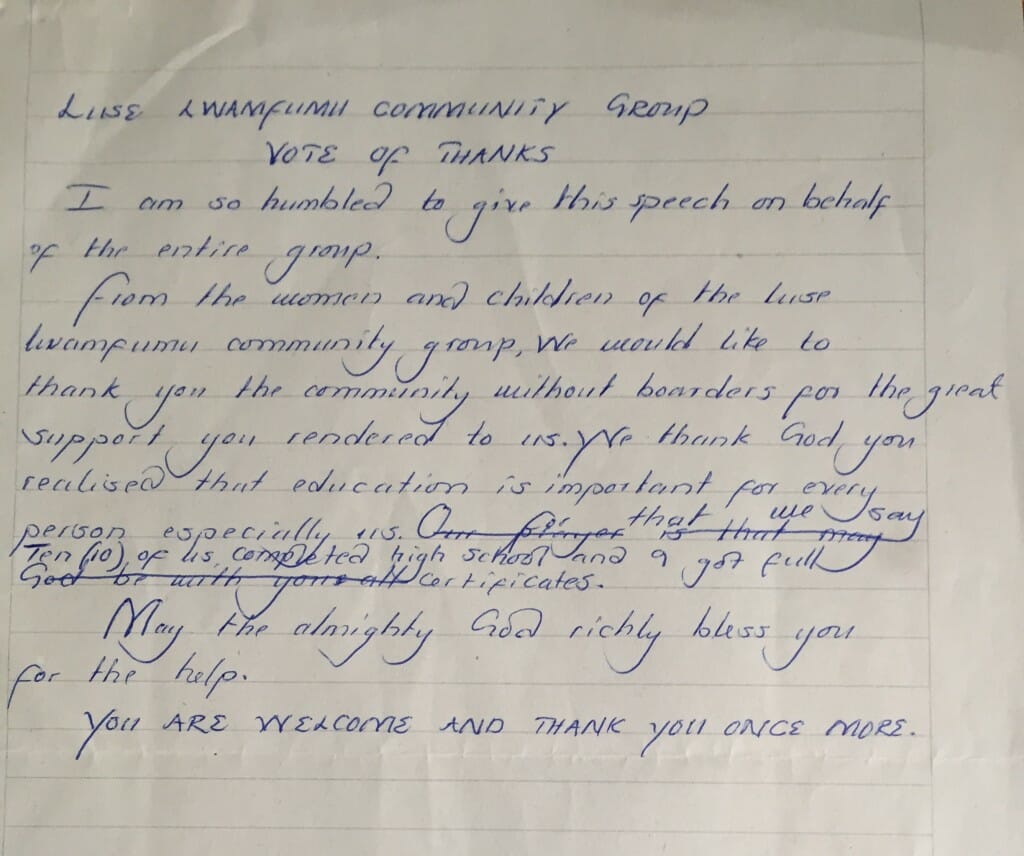 LUSE LWAMFUMU COMMUNITY GROUP
VOTE OF THANKS
I am so humbled to give this speech on behalf
of the entire group.
From the women and children of the Luse
Lwamfumu community group, We would like to
thank you the community without boarders for the great
support you rendered to us. We thank God, you
realised that education is important for every
person especially us. Our prayer is that may
for that we say
Ten (10) of us completed high school and 9 got full
God be with you all certificates.
May the almighty God richly bless you
for the help.
YOU ARE WELCOME AND THANK YOU ONCE MORE.